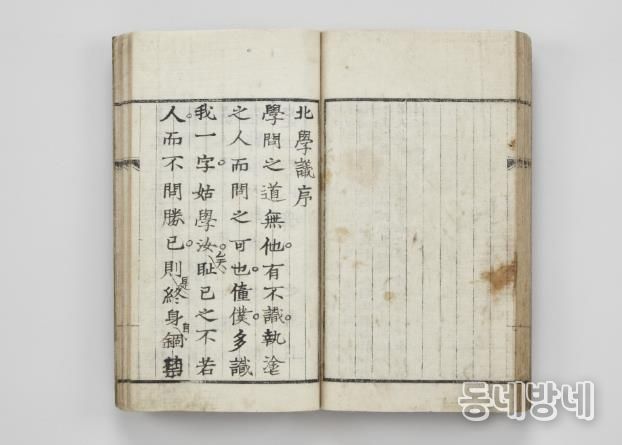 北學議序
學問之道無他有不識執塗
之人而問之可也僮僕多識
我一字姑學汝矣耻己之不若
人而不問勝己則是終身自錮
동네방네